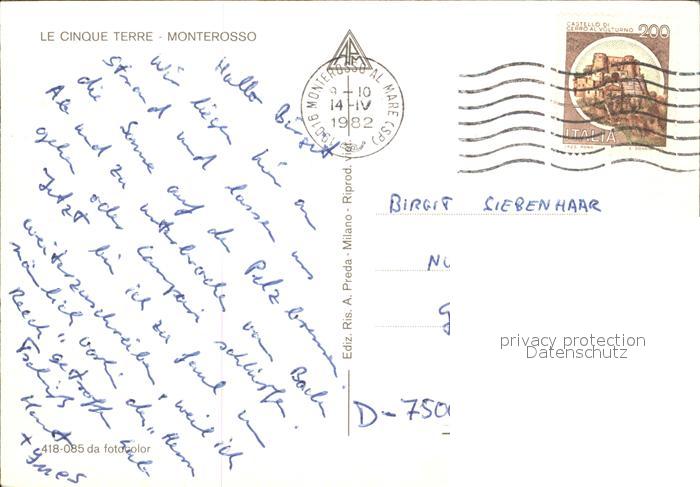 LE CINQUE TERRE - MONTEROSSO
Hallo Birgit
Wir liegen hier am
Strand und lassen uns
die Sonne auf den Pelz brennen.
Ab und zu unterbrochen von Baden
gehen oder Campari schlürfen.
Jetzt bin ich zu faul um
weiterzuschreiben, weil ich
nämlich vorhin den "Herrn
Reich" getroffen habe
Tschüß
Horst
+ Ynes
418-085 da fotocolor
Ediz. Ris. A. Preda - Milano - Riprod. viet.
19016 MONTEROSSO AL MARE (SP)
9-10
14-IV
1982
CASTELLO DI
CERRO AL VOLTURNO
200
ITALIA
BIRGIT SIEBENHAAR
NU
G
D-750
privacy protection
Datenschutz